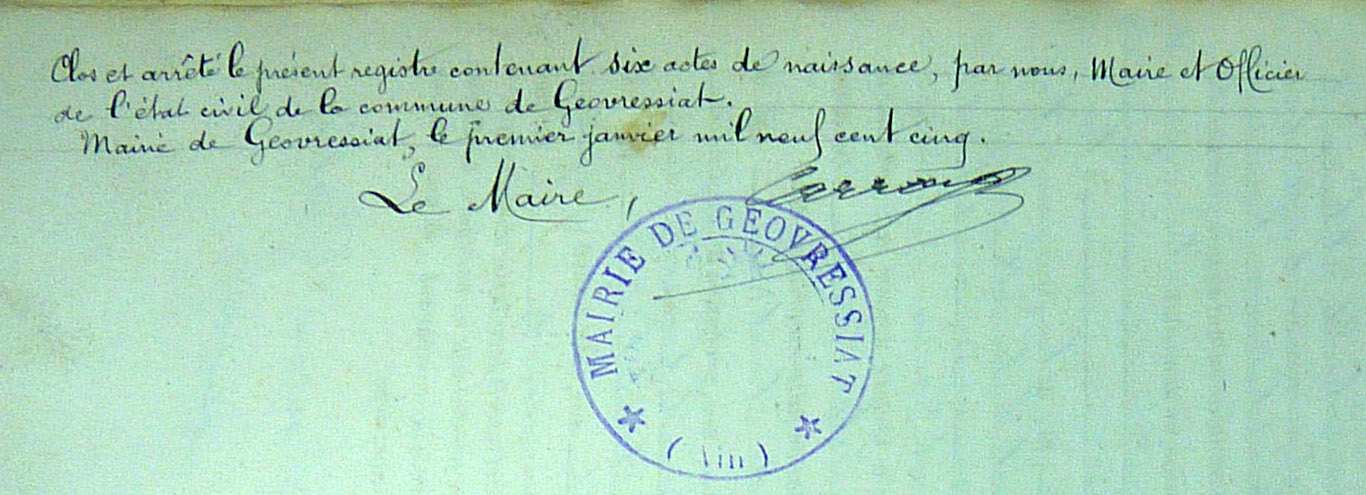 Clos et arrêté le présent registre contenant six actes de naissance, par nous, Maire et Officier
de l'état civil de la commune de Geovressiat.
Mairie de Geovressiat, le premier janvier mil neuf cent cinq.
Le Maire,
MAIRIE DE GEOVRESSIAT
(Ain)